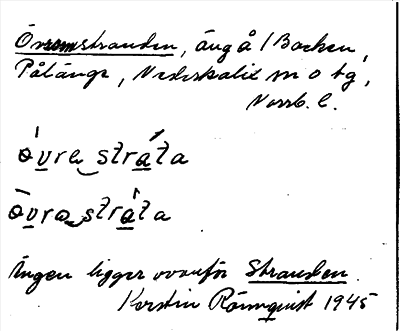 Övreomstranden, äng å /Backen,
Pålänge, Nederkalix sn o tg,
Norrb. l.
òv̲re‿strá̲ta
ōv̲ra‿strá̲ta
Ängen ligger ovanför Stranden.
Kerstin Rönnquist 1945